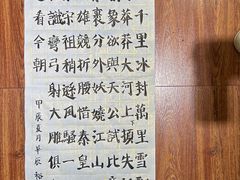 千里冰封萬里雪
莽莽大河上下頓失
象欲與天公試比
裹分外妖嬈江山
雄競折腰惜秦皇
宋祖稍遜風騷一
識彎弓射大雕俱
看今朝
甲辰夏月